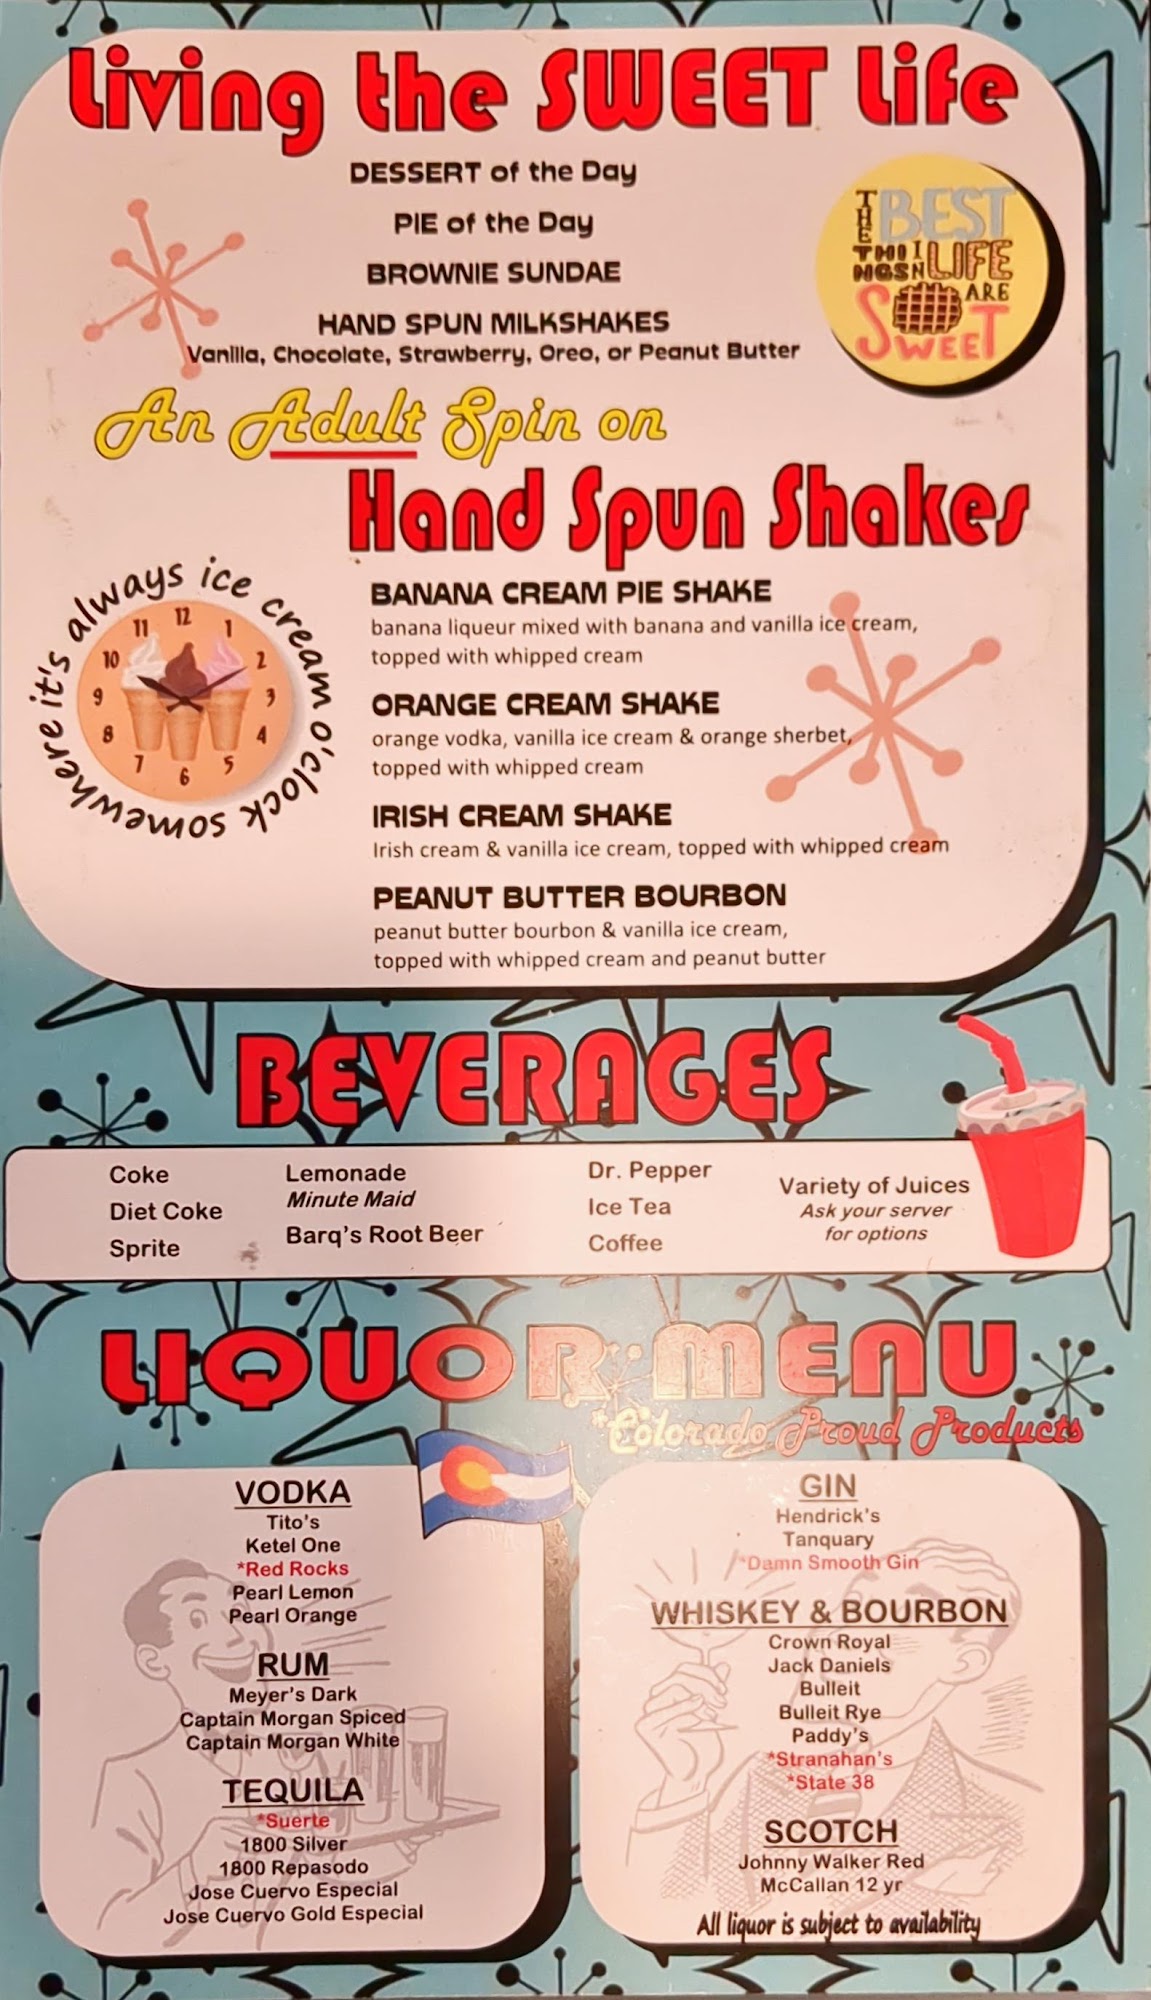 Living the SWEET Life
DESSERT of the Day
PIE of the Day
BROWNIE SUNDAE
HAND SPUN MILKSHAKES
Vanilla, Chocolate, Strawberry, Oreo, or Peanut Butter
THE BEST
THINGS IN LIFE
ARE
SWEET
An Adult Spin on
Hand Spun Shakes
it's always ice cream o'clock somewhere
12
1
2
3
4
5
6
7
8
9
10
11
BANANA CREAM PIE SHAKE
banana liqueur mixed with banana and vanilla ice cream,
topped with whipped cream
ORANGE CREAM SHAKE
orange vodka, vanilla ice cream & orange sherbet,
topped with whipped cream
IRISH CREAM SHAKE
Irish cream & vanilla ice cream, topped with whipped cream
PEANUT BUTTER BOURBON
peanut butter bourbon & vanilla ice cream,
topped with whipped cream and peanut butter
BEVERAGES
Coke
Diet Coke
Sprite
Lemonade
Minute Maid
Barq's Root Beer
Dr. Pepper
Ice Tea
Coffee
Variety of Juices
Ask your server
for options
LIQUOR MENU
*Colorado Proud Products
VODKA
Tito's
Ketel One
*Red Rocks
Pearl Lemon
Pearl Orange
RUM
Meyer's Dark
Captain Morgan Spiced
Captain Morgan White
TEQUILA
*Suerte
1800 Silver
1800 Repasodo
Jose Cuervo Especial
Jose Cuervo Gold Especial
GIN
Hendrick's
Tanquary
*Damn Smooth Gin
WHISKEY & BOURBON
Crown Royal
Jack Daniels
Bulleit
Bulleit Rye
Paddy's
*Stranahan's
*State 38
SCOTCH
Johnny Walker Red
McCallan 12 yr
All liquor is subject to availability